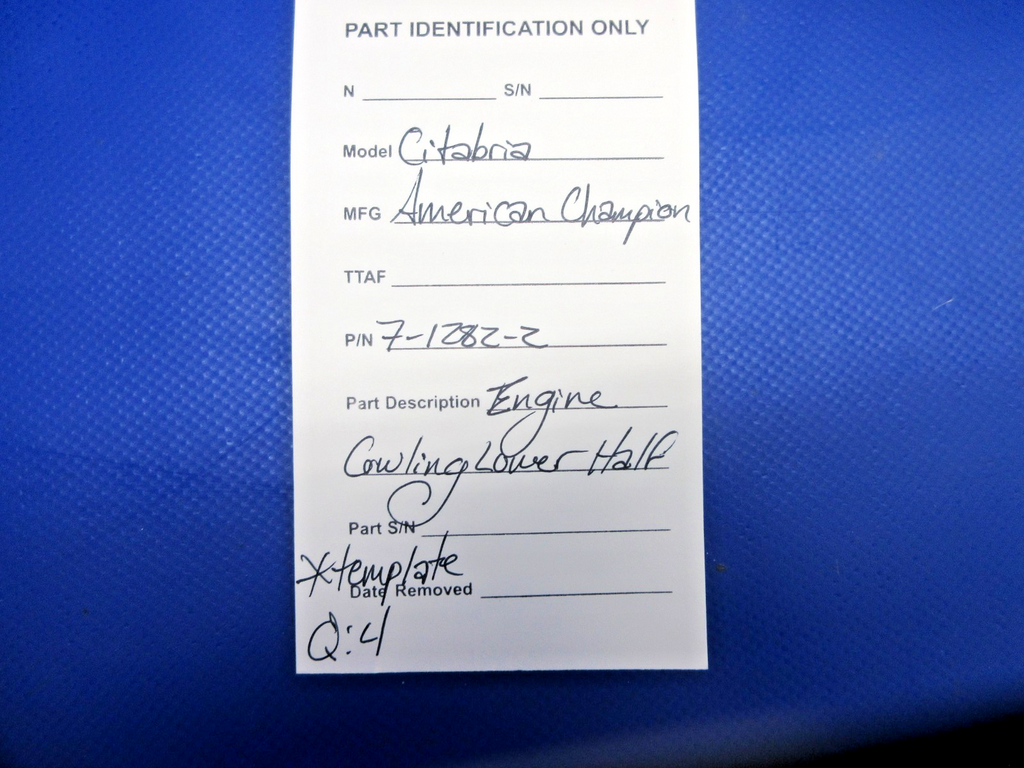 PART IDENTIFICATION ONLY
N S/N
Model Citabria
MFG American Champion
TTAF
P/N 7-1282-2
Part Description Engine
Cowling Lower Half
Part S/N
*template
Date Removed
Q:4